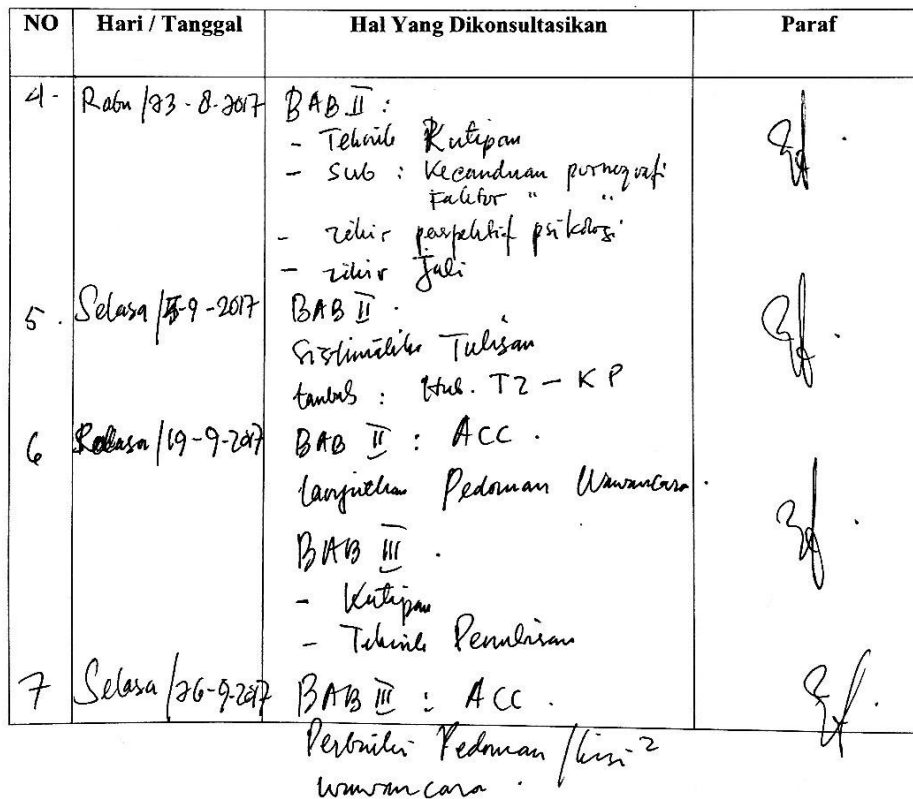 NO Hari / Tanggal Hal Yang Dikonsultasikan Paraf
4. Rabu / 23-8-2017 BAB II :
- Teknik Kutipan
- Sub : Kecanduan pornografi
Faktor " "
- zikir perspektif psikologi
- zikir Jali
5. Selasa / 5-9-2017 BAB II .
Sistimatika Tulisan
tambah : Hub. TZ - KP
6 Selasa / 19-9-2017 BAB II : ACC .
lanjutkan Pedoman Wawancara .
BAB III .
- Kutipan
- Teknik Penulisan
7 Selasa / 26-9-2017 BAB III : ACC .
Perbaiki Pedoman / kisi2
wawancara .